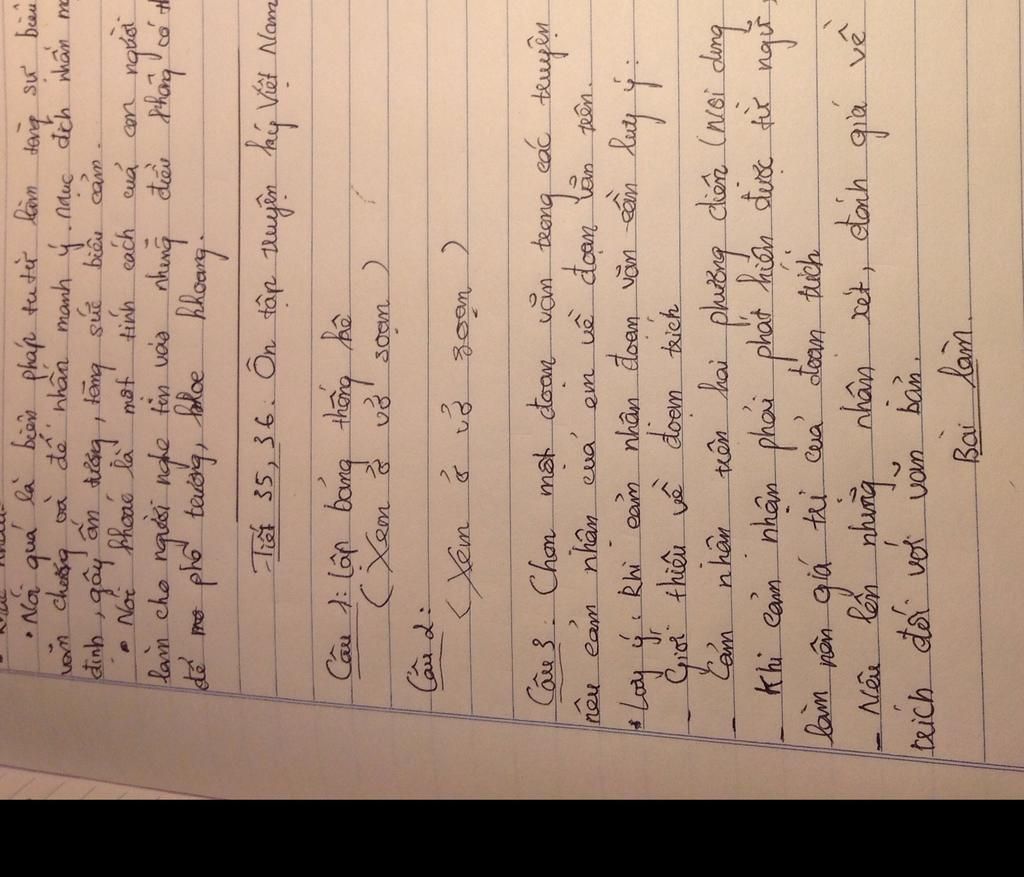 • Nói quá là biện pháp tu từ làm tăng sự biểu
văn chương và để nhấn mạnh ý. mục đích nhấn mạ
định, gây ấn tượng, tăng sức biểu cảm.
• Nói khoác là một tính cách của con người
làm cho người nghe tin vào những điều không có th
để phô trương, khoe khoang.
Tiết 35, 36: Ôn tập truyện ký Việt Nam
Câu 1: Lập bảng thống kê
(Xem ở vở soạn)
Câu 2:
(Xem ở vở soạn)
Câu 3: Chọn một đoạn văn trong các truyện
nêu cảm nhận của em về đoạn văn trên.
* Lưu ý: Khi cảm nhận đoạn văn cần lưu ý:
- Giới thiệu về đoạn trích
- Cảm nhận trên hai phương diện (nội dung
- Khi cảm nhận phải phát hiện được từ ngữ,
làm nên giá trị của đoạn trích
- Nêu lên những nhận xét, đánh giá về
trích đối với văn bản.
Bài làm.